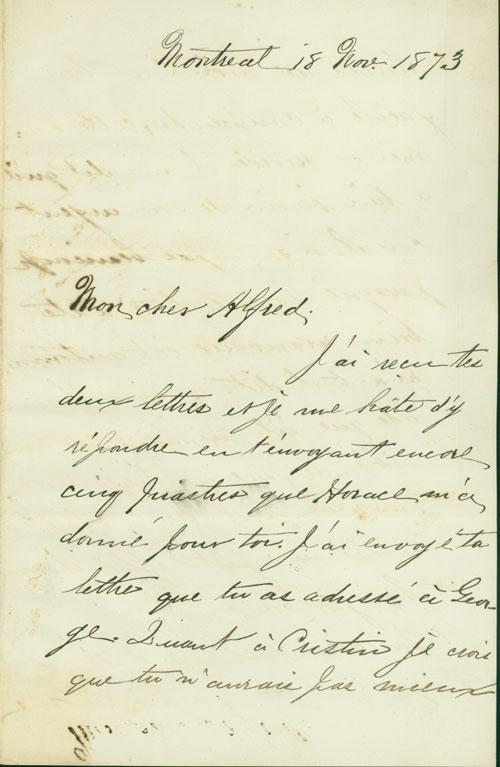 Montreal 18 Nov. 1873
Mon cher Alfred,
J'ai recu tes
deux lettres et je me hâte d'y
répondre en t'envoyant encore
cinq piastres que Horace m'a
donné pour toi. J'ai envoyé ta
lettre que tu as adressé à Geor-
ge. Quant à Cristin je crois
que tu n'aurais pas mieux